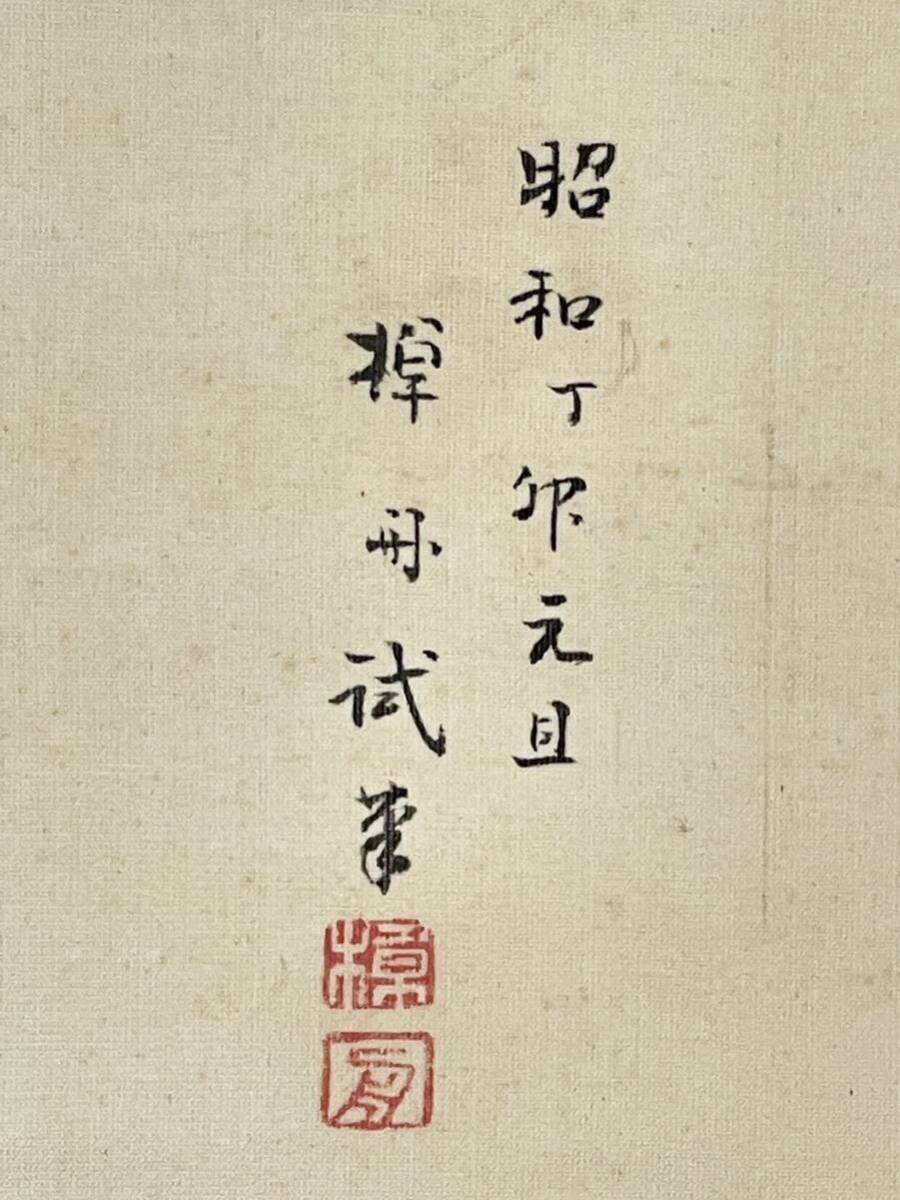 昭和丁卯元旦
棹舟试筆